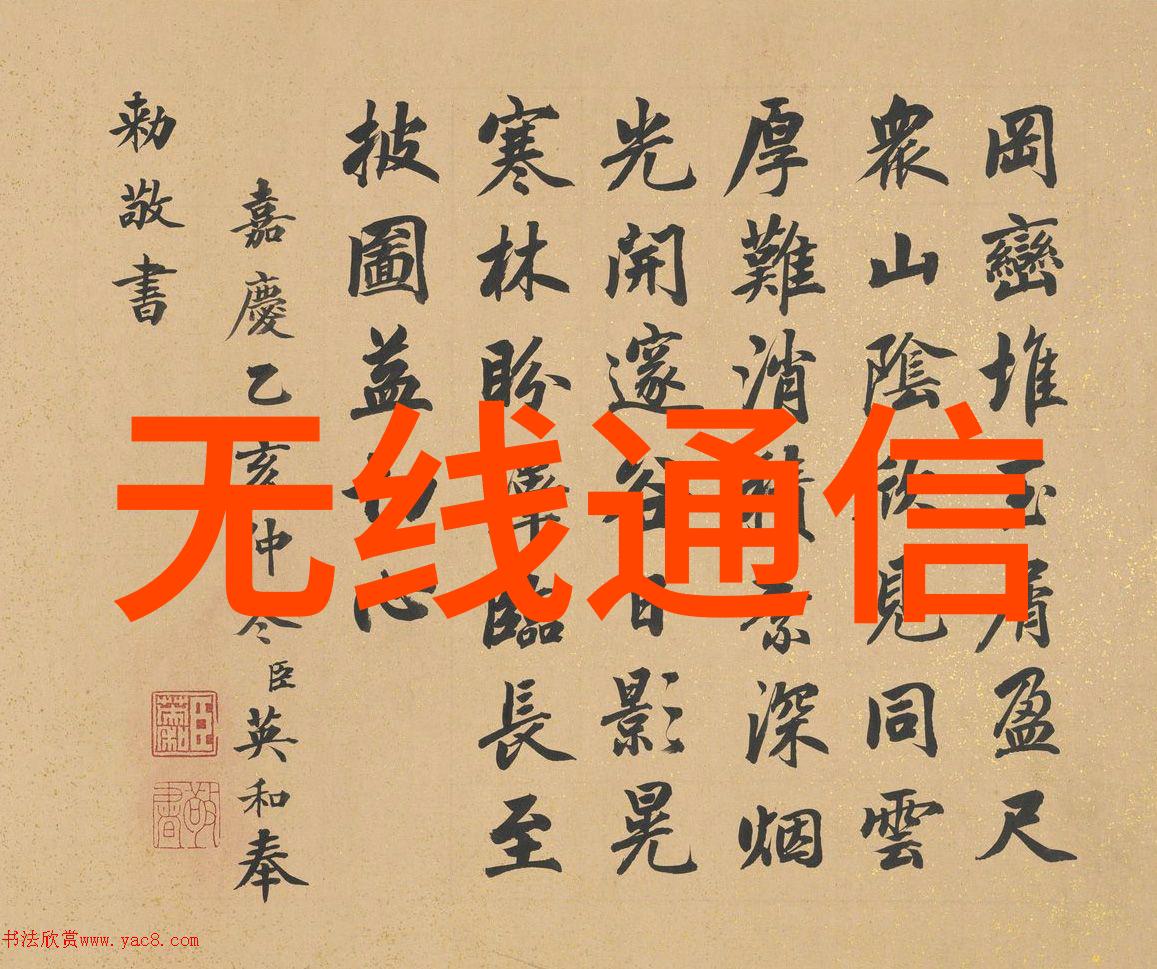 岡巒堆玉屑盈尺
衆山陰欣見同雲
厚難消積素深烟
光開邃谷日影晃
寒林盼準臨長至
披圖益切心
嘉慶乙亥仲冬臣英和奉
勅敬書
无线通信
敬書
书法欣赏www.yac8.com